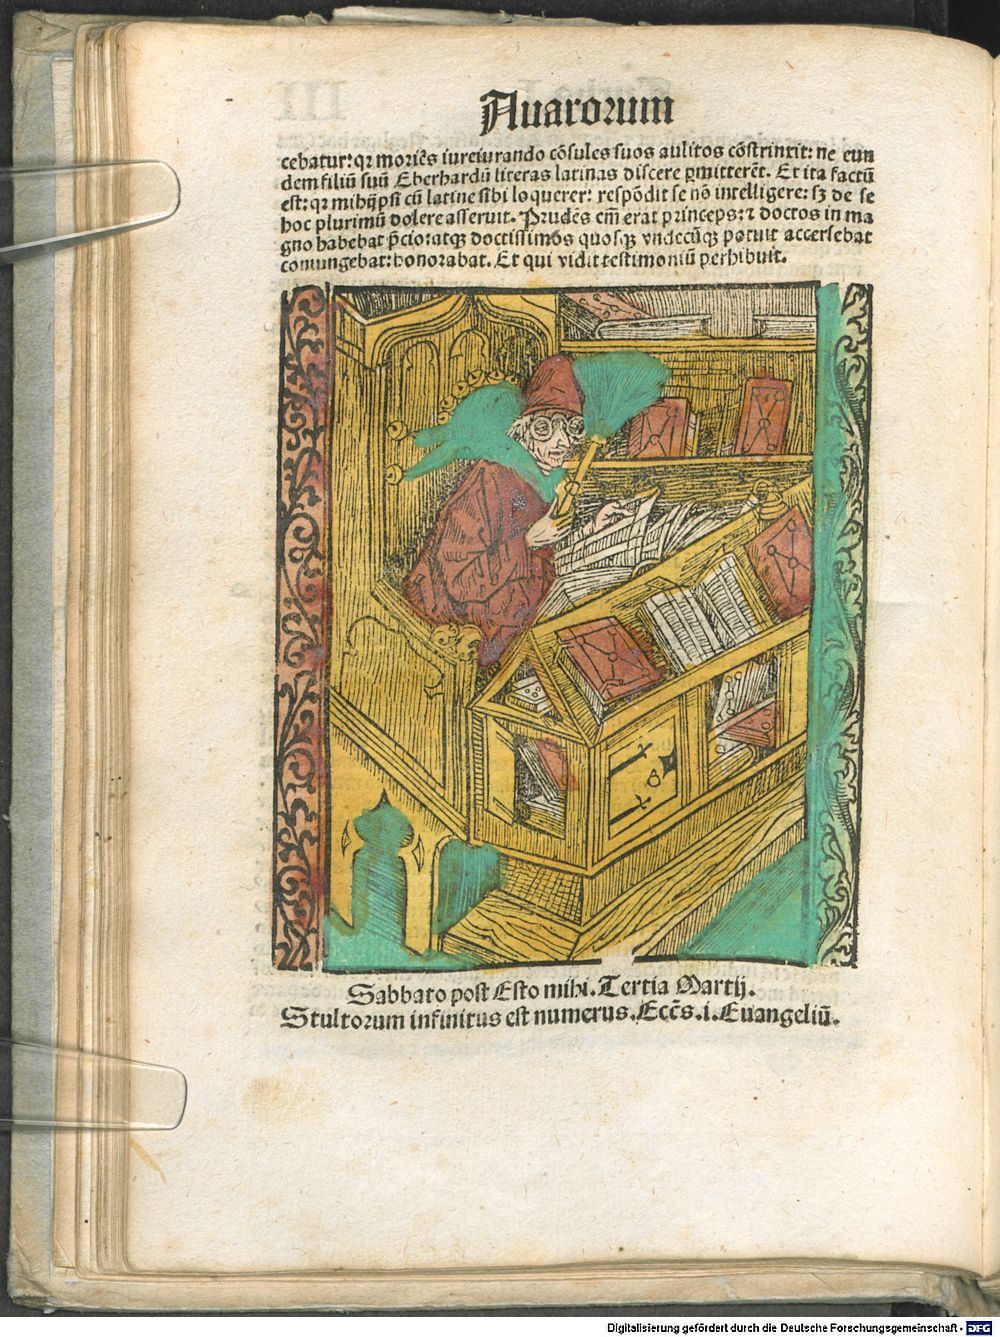 Auarorum
cebatur: qꝛ moriẽs iureiurando cõsules suos aulitos cõstrinxit: ne eun
dem filiũ suũ Eberhardũ literas latinas discere ꝑmitterẽt. Et ita factũ
est: qꝛ mihijpsi cũ latine sibi loquerer: respõdit se nõ intelligere: sꝫ de se
hoc plurimũ dolere asseruit. Prudẽs em̃ erat princeps: ⁊ doctos in ma
gno habebat p̃cio: atqꝫ doctissimos quosqꝫ vndecũqꝫ potuit accersebat
coniungebat: honorabat. Et qui vidit testimoniũ perhibuit.
Sabbato post Esto mihi. Tertia Martij.
Stultorum infinitus est numerus. Eccẽs. i. Euangeliũ.
Digitalisierung gefördert durch die Deutsche Forschungsgemeinschaft - DFG